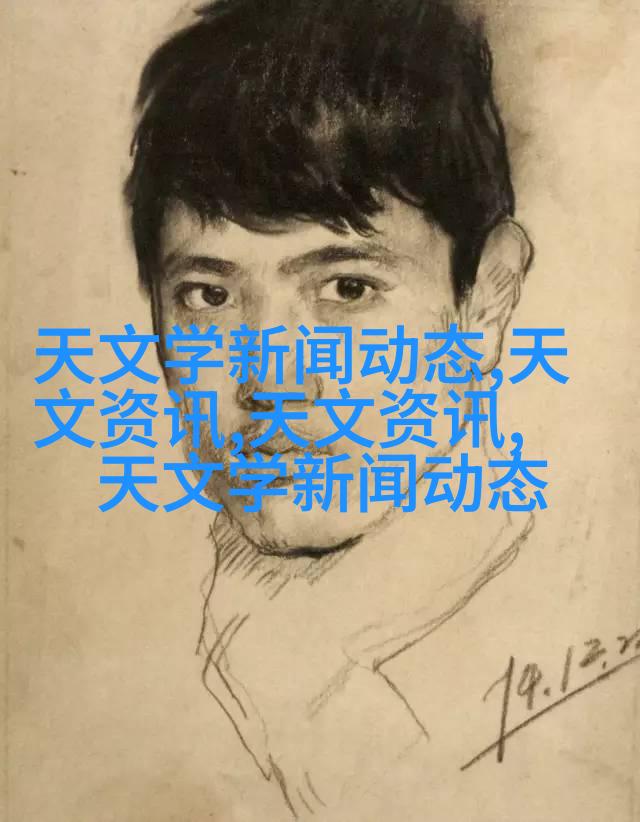 天文学新闻动态,天
文资讯,天文资讯,
天文学新闻动态